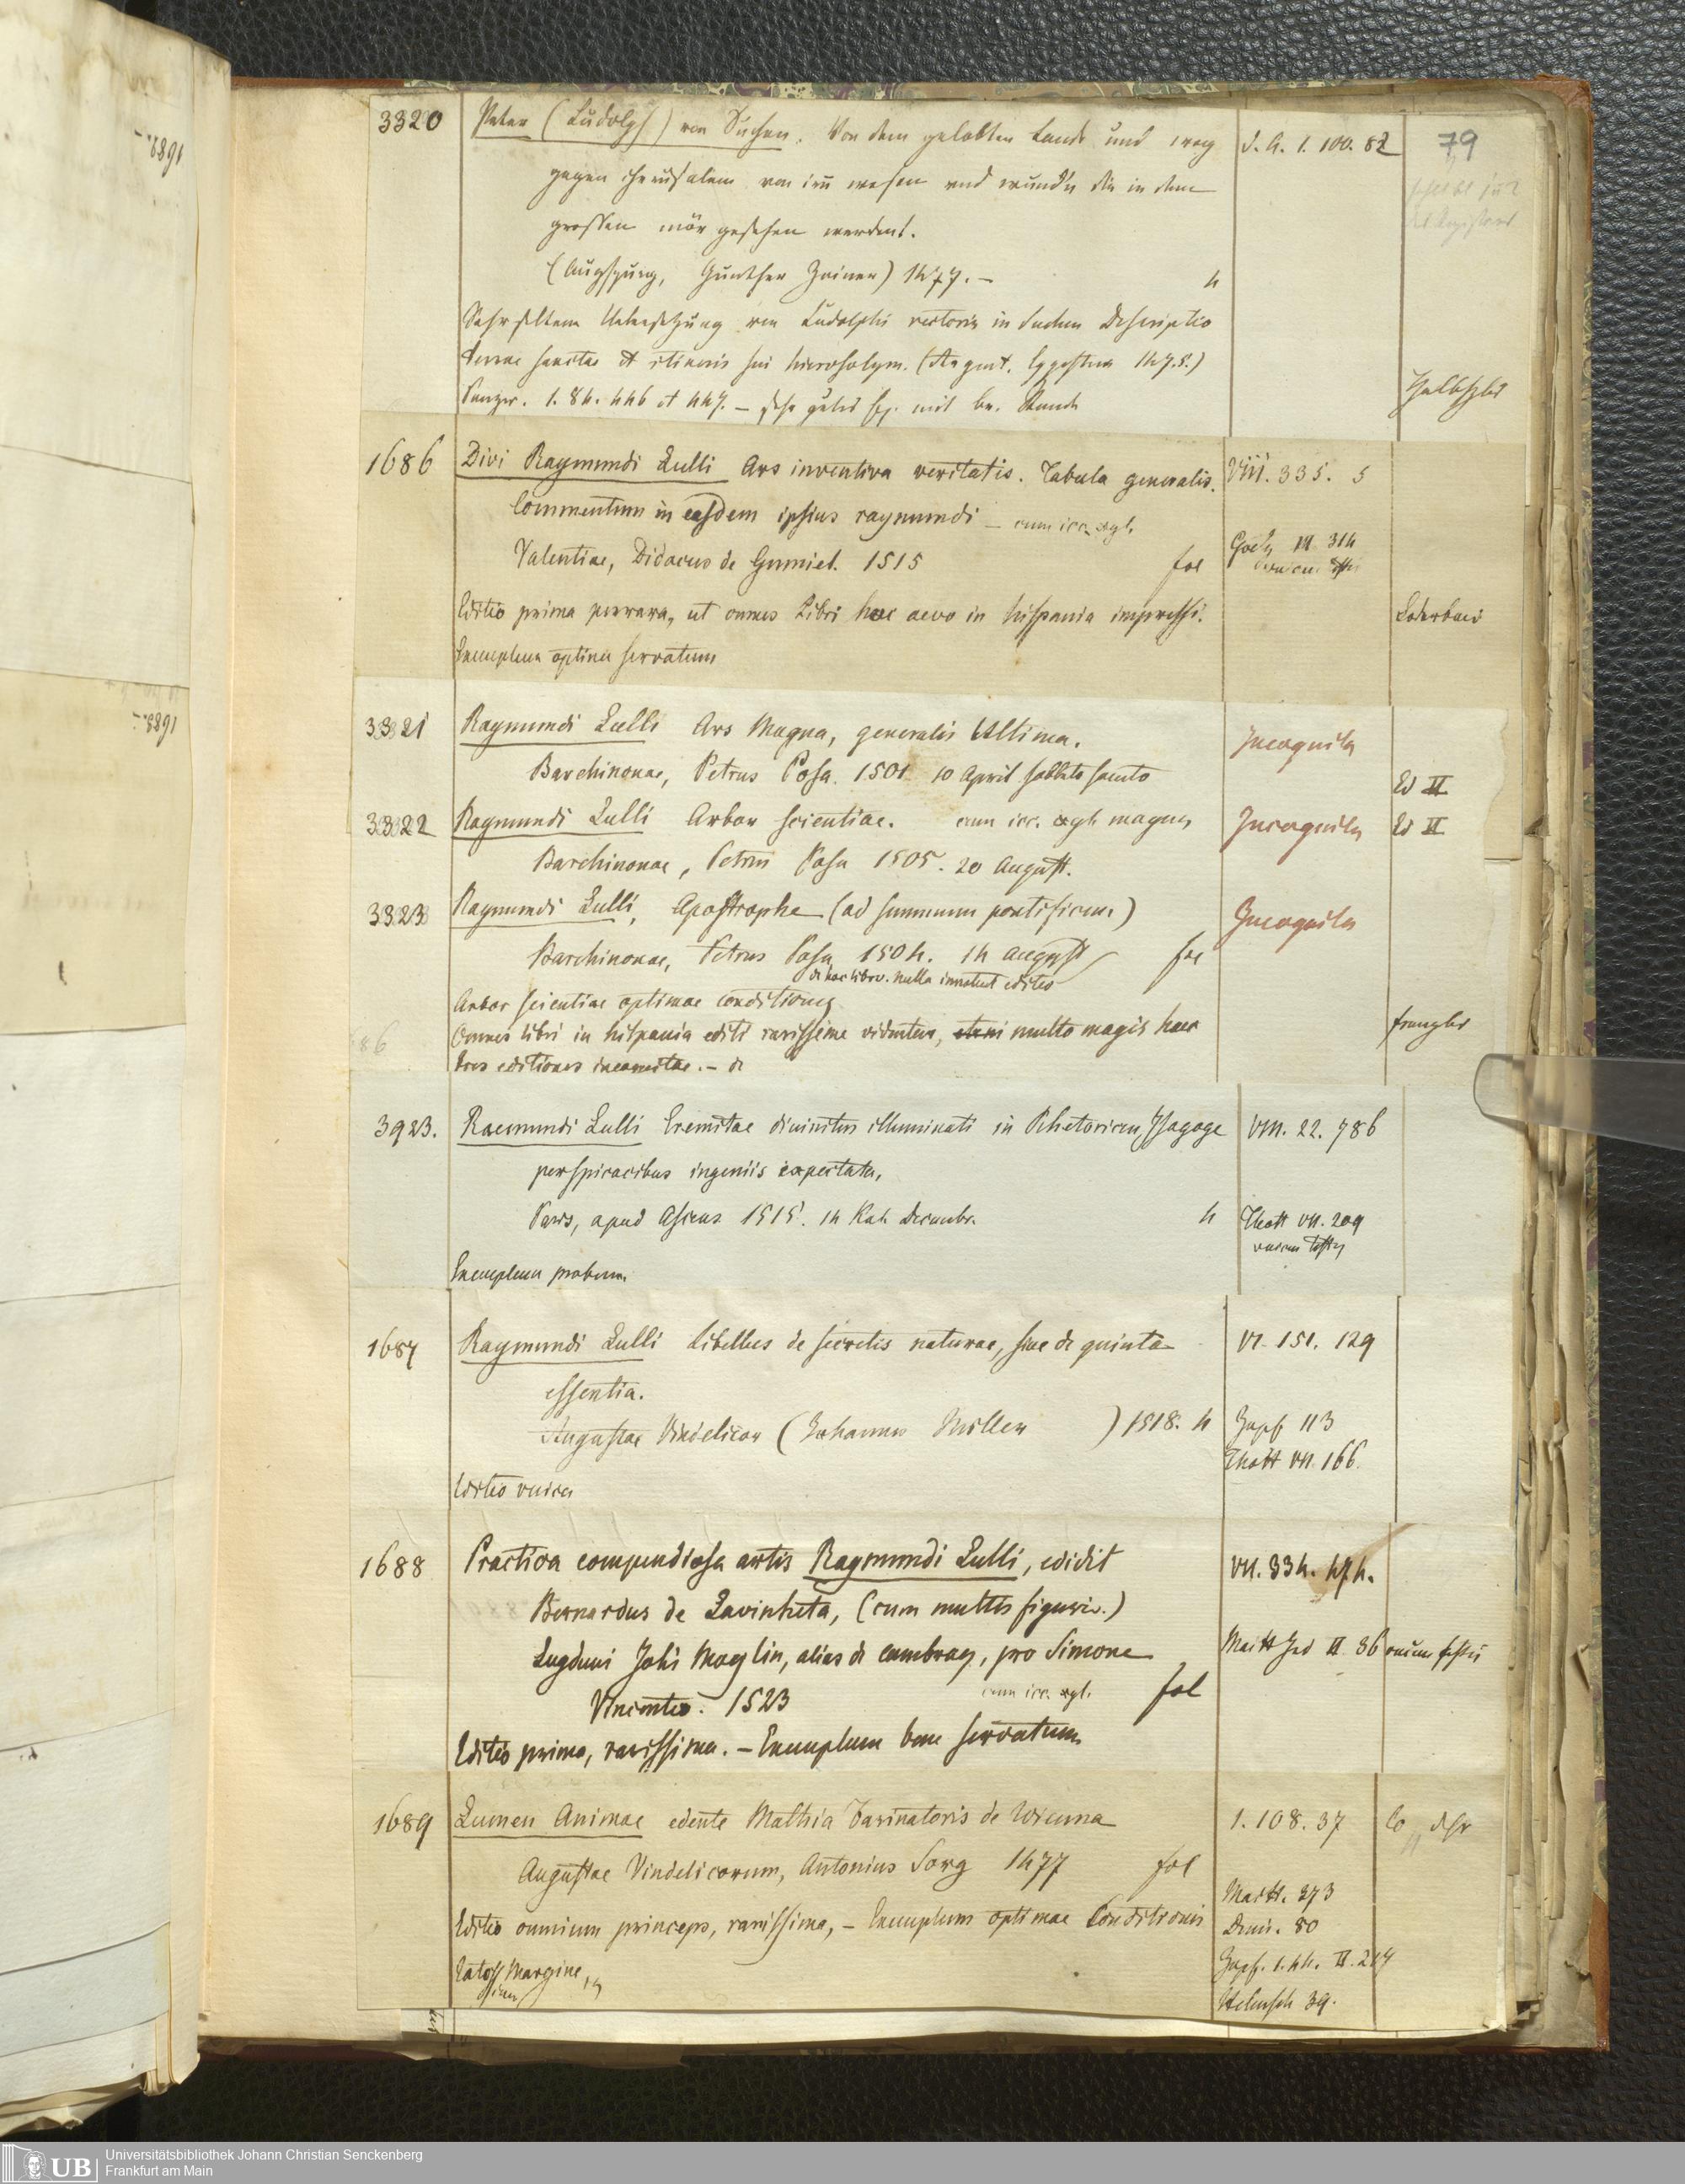 3320 Peter (Ludolph) von Suchen. Von dem gelobten Land und weg J. A. 1. 100. 82 79
gegen Jherusalem von irm wesen und wunder die in dem
grossen mör gesehen werdent.
(Augspurg, Gunther Zainer) 1477. – 4
Sehr seltene Uebersetzung von Ludolphi rectoris in Suchen Descriptio
terrae sanctae et itineris sui hierosolym. (Argent. Eggesteyn 147.8.)
Panzer. 1. 84. 446 et 447. – sehr gutes Ex. mit br. Rande Halbfzbd
1686 Divi Raymundi Lulli Ars inventiva veritatis. Tabula generalis. VIII. 335. 5
Commentum in easdem ipsius raymundi – cum icc. xyl.
Valentiae, Didacus de Gumiel. 1515 fol Goetz III 314
Editio prima perrara, ut omnes Libri hoc aevo in hispania impressi. Lederband
Exemplum optime servatum
3321 Raymundi Lulli Ars Magna, generalis Ultima. Incognita
Barchinonae, Petrus Posa. 1501 10 April sabbato sancto Ed II
3322 Raymundi Lulli Arbor scientiae. cum icc. xyl. magnis Incognita Ed II
Barchinonae, Petrus Posa 1505. 20 August.
3323 Raymundi Lulli, Apostrophe (ad summum pontificem) Incognita
Barchinonae, Petrus Posa 1504. 14 August fol
de hoc libro nulla innotuit editio
Arbor scientiae optimae conditionis
Omnes libri in hispania editi rarissime videntur, multo magis haec franzbd
tres editiones incognitae. – de
3923. Raemundi Lulli Eremitae divinitus illuminati in Rhetoricen Isagoge VIII. 22. 786
perspicacibus ingeniis expectata,
Paris, apud Ascens 1515. 14 Kal. Decembr. 4 Thott VII. 209
Exemplum probum.
1687 Raymundi Lulli Libellus de secretis naturae, sive de quinta VI. 151. 129
essentia.
Augustae Vindelicor (Johannes Miller ) 1518. 4 Zapf 113
Thott VII. 166.
Editio unica
1688 Practica compendiosa artis Raymundi Lulli, edidit VII. 334. 474.
Bernardus de Lavinheta, (cum multis figuris.)
Lugduni Johi Moylin, alias de cambray, pro Simone Maitt Ind II. 86
Vincentio. 1523 cum icc. xyl. fol
Editio prima, rarissima. – Exemplum bene servatum
1689 Lumen Animae edente Mathia Farinatoris de Wienna 1. 108. 37
Augustae Vindelicorum, Antonius Sorg 1477 fol
Maitt. 373
Editio omnium princeps, rarissima, – Exemplum optimae Conditionis Denis. 80
Latoss Margine Zapf. 1. 44. II. 217
Helmsch 39.
1682.–
1683.–
UB
Universitätsbibliothek Johann Christian Senckenberg
Frankfurt am Main